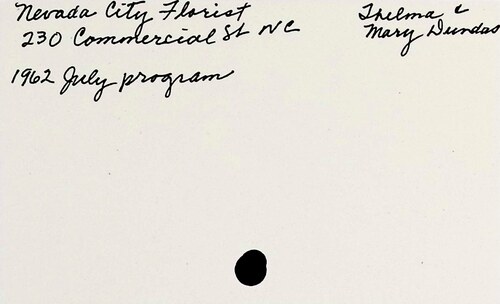 Nevada City Florist
230 Commercial St NC
1962 July program
Thelma &
Mary Dundas